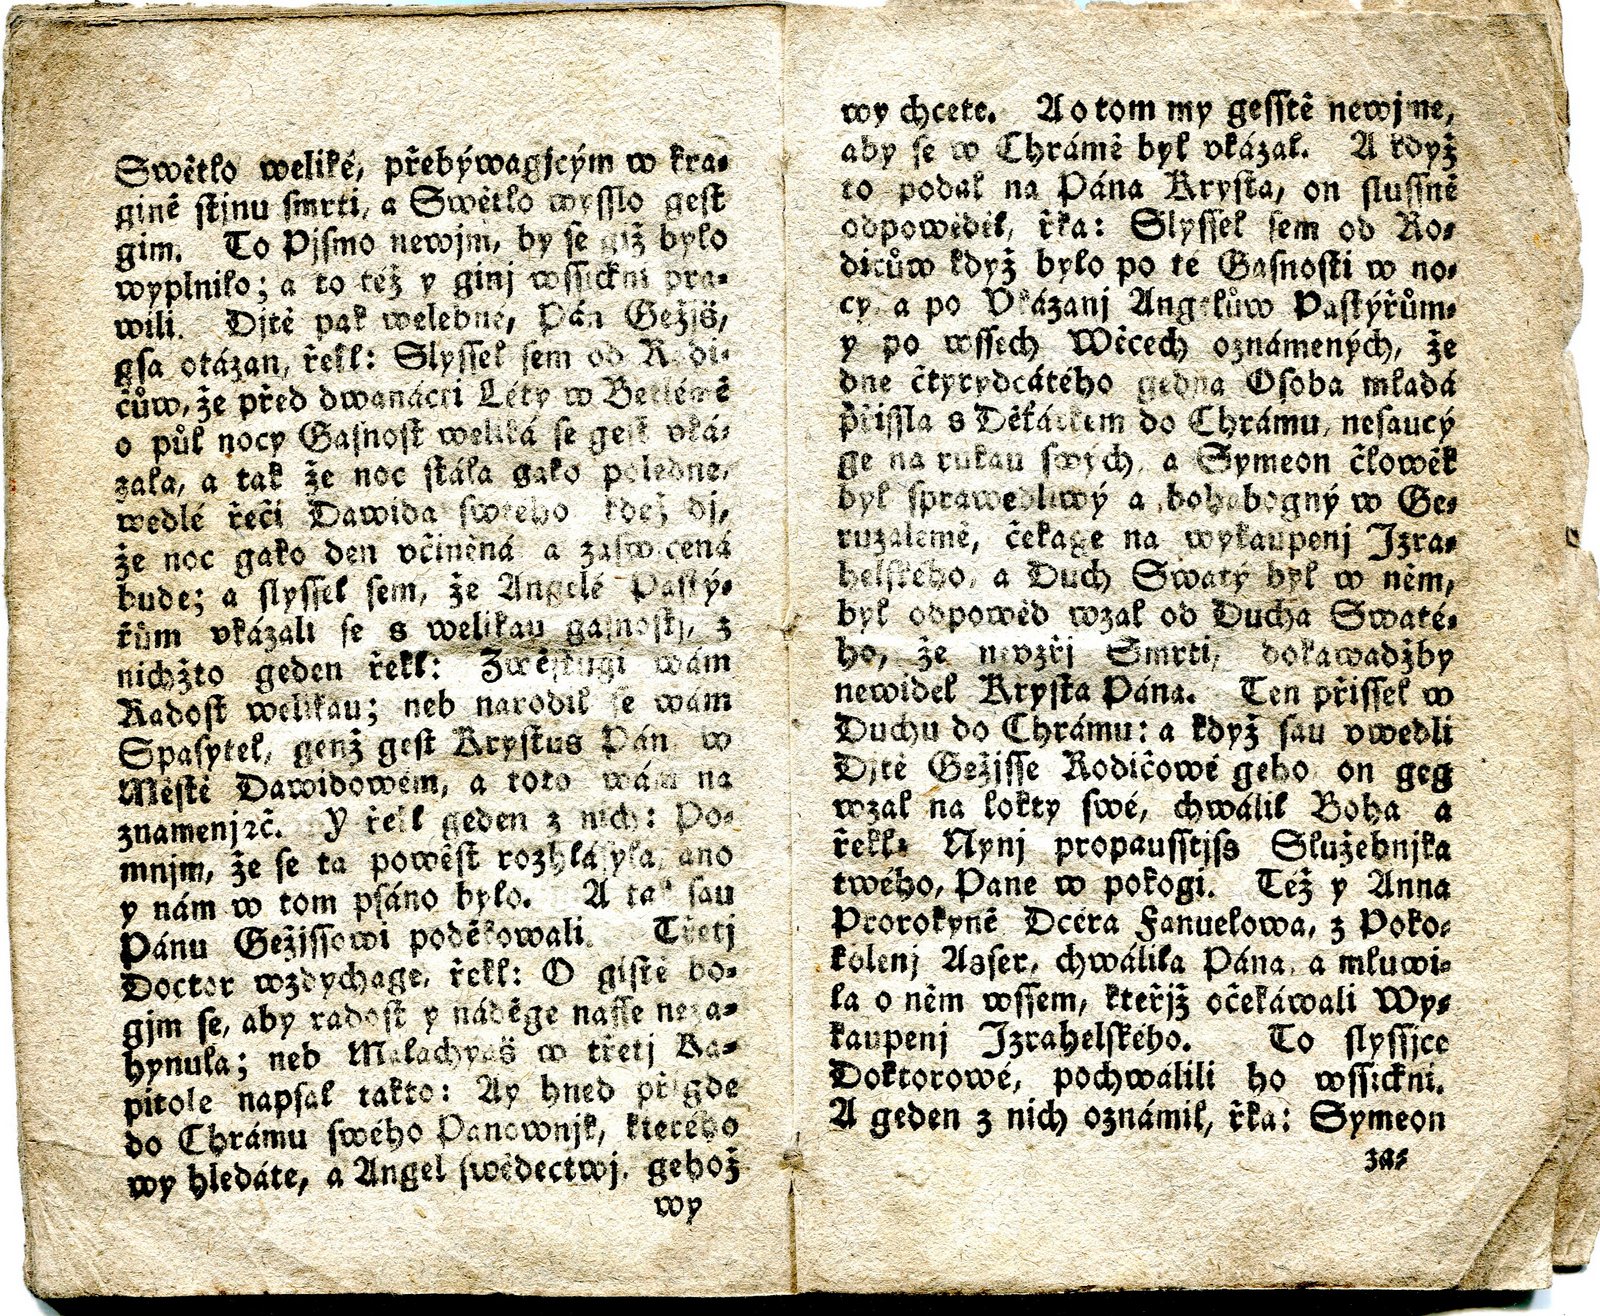 Swětlo weliké, přebýwagjcým w kra-
gině stjnu smrti, a Swětlo wysslo gest
gim. To Pjsmo newjm, by se giž bylo
wyplnilo; a to též y ginj wssickni pra-
wili. Djtě pak welebné, Pán Gežjš,
gsa otázan, řekl: Slyssel sem od Rodi-
čůw, že před dwanácti Léty w Betlémě
o půl nocy Gasnost weliká se gest vká-
zala, a tak že noc stála gako poledne,
wedlé řeči Dawida swtého kdež dj,
že noc gako den včiněná a zaswicená
bude; a slyssel sem, že Angelé Pastý-
řům vkázali se s welikau gasnostj, z
nichžto geden řekl: Zwěstugi wám
Radost welikau; neb narodil se wám
Spasytel, genž gest Krystus Pán w
Městě Dawidowém, a toto wám na
znamenj ꝛč. Y řekl geden z nich: Po-
mnjm, že se ta powěst rozhlásyla, ano
y nám w tom psáno bylo. A tak sau
Pánu Gežissowi poděkowali. Třetj
Doctor wzdychage, řekl: O gistě bo-
gjm se, aby radost y náděge nasse neza-
hynula; neb Malachyaš w třetj Ka-
pitole napsal takto: Ay hned přigde
do Chrámu swého Panownjk, kterého
wy hledáte, a Angel swědectwj, gehož
wy
wy chcete. A o tom my gesstě newjme,
aby se w Chrámě byl vkázal. A když
to podal na Pána Krysta, on slussně
odpowěděl, řka: Slyssel sem od Ro-
dičůw když bylo po té Gasnosti w no-
cy a po Vkázanj Angelůw Pastýřům,
y po wssech Wěcech oznámených, že
dne čtyrydcátého gedna Osoba mladá
přissla s Děťátkem do Chrámu, nesaucý
ge na rukau swých, a Symeon člowěk
byl sprawedliwý a bohabogný w Ge-
ruzalémě, čekage na wykaupenj Jzra-
helského, a Duch Swatý byl w něm,
byl odpowěd wzal od Ducha Swaté-
ho, že nevzřj Smrti, dokawadžby
newidel Krysta Pána. Ten přissel w
Duchu do Chrámu: a když sau vwedli
Djtě Gežjsse Rodičowé geho, on geg
wzal na lokty swé, chwálil Boha a
řekl: Nynj propausstjss Služebnjka
twého, Pane w pokogi. Též y Anna
Prorokyně Dcera Fanuelowa, z Poko-
kolenj Asser, chwálila Pána, a mluwi-
la o něm wssem, kteřjž očekáwali Wy-
kaupenj Jzrahelského. To slyssjce
Doktorowé, pochwálili ho wssickni.
A geden z nich oznámil, řka: Symeon
zas,